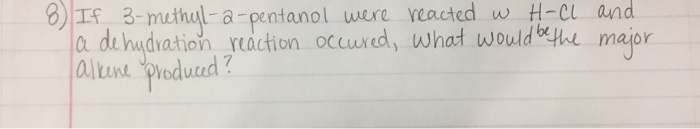 8) If 3-methyl-2-pentanol were reacted w H-Cl and
a dehydration reaction occured, what would be the major
alkene produced?